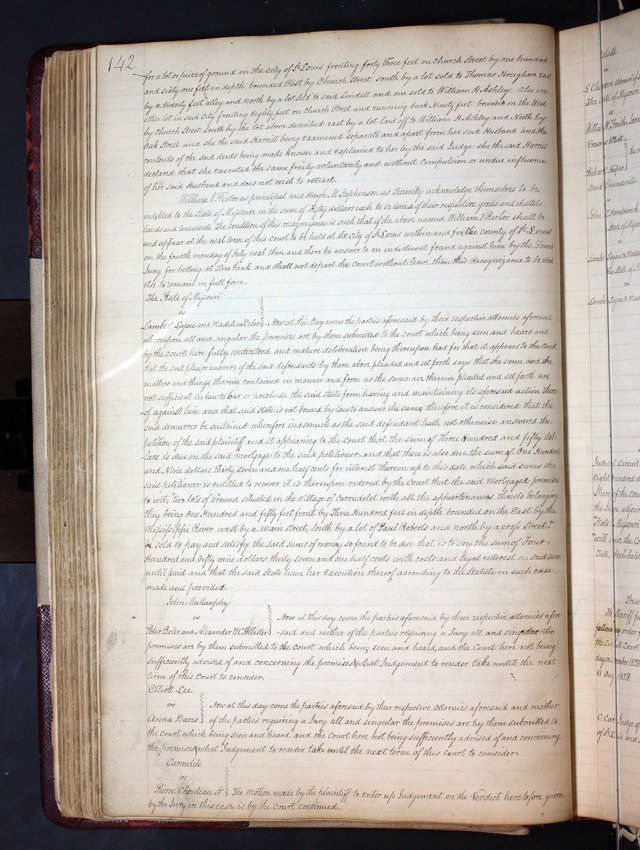 142
for a lot or piece of ground in the city of St Louis fronting forty three feet on Church Street by one hundred
and sixty one feet in depth bounded West by Church Street south by a lot sold to Thomas Houghan east
by a twenty feet alley and north by a lot sold to said Lindell and one sold to William H. Ashley. Also one
other lot in said City fronting Eighty feet on Church Street and running back Ninety feet bounded on the West
by Church Street South by the lot above described east by a lot laid off to William H Ashley and North by
Oak Street and she the said Harriet being examined separate and apart from her said Husband and the
contents of the said deeds being made known and explained to her by the said Judge she the said Harriet
declared that she executed the same freely voluntarily and without compulsion or undue influence
of her said Husband and does not wish to retract.
William V Rector as principal and Hugh M Stephenson as Security acknowledge themselves to be
indebted to the State of Missouri in the sum of Fifty dollars each to be levied of their respective goods and chattels
lands and tenements. The Condition of this recognizance is such that if the above named William V Rector shall be
and appear at the next term of this Court to be held at the City of St Louis within and for the County of St Louis
on the fourth monday of July next then and there to answer to an indictment found against him by the Grand
Jury for betting at Faro bank and shall not depart this Court without leave then this Recognizance to be void
else to remain in full force.
The State of Missouri
vs
Lambert Lajoie and Madeline Delor Now at this Day come the parties aforesaid by their respective attornies aforesaid
whereupon all and singular the premises are by them submitted to the court which being seen and heard and
by the court here fully understood and mature deliberation being thereupon had for that it appears to the Court
that the said plea (or answer) of the said defendants by them above pleaded and set forth says that the same and the
matters and things therein contained in manner and form as the same are therein pleaded and set forth are
not sufficient in law to bar or preclude the said State from having and maintaining its aforesaid action there-
of against him and that said State is not bound by law to answer the same therefore it is considered that the
said demurrer be sustained wherefore inasmuch as the said defendant hath not otherwise answered the
petition of the said plaintiff and it appearing to the court that the sum of Three Hundred and fifty dol-
lars is due on the said mortgage to the said petitioner and that there is also due the sum of One Hundred
and Nine dollars thirty seven and one half cents for interest thereon up to this date which said sums the
said petitioner is entitled to recover it is thereupon ordered by the Court that the said mortgaged premises
to wit, two lots of Ground situated in the village of Carondelet with all the appurtenances thereto belonging
they being One Hundred and fifty feet front by Three Hundred feet in depth bounded on the East by the
Mississippi River west by a main street, south by a lot of Paul Roberts and north by a cross Street
be sold to pay and satisfy the said sums of money so found to be due that is to say the sum of Four
Hundred and Fifty nine dollars thirty seven and one half cents with costs and legal interest on said sum
until paid and that the said State have her Execution thereof according to the Statute in such case
made and provided. -
John Mullanphy
vs Now at this day come the parties aforesaid by their respective attornies afore
Peter Delor and Alexander McAllister -said and neither of the parties requiring a Jury all and singular the
premises are by them submitted to the court which being seen and heard, and the Court here not being
sufficiently advised of and concerning the premises & what Judgement to render take until the next
term of this court to consider.
Elliott Lee
vs Now at this day come the parties aforesaid by their respective attornies aforesaid and neither
Anna Davis of the parties requiring a Jury all and singular the premises are by them submitted to
the court which being seen and heard and the Court here not being sufficiently advised of and concerning
the premises & what Judgement to render take until the next term of this Court to consider
Carmelite
vs
Pierre Chouteau Sr The motion made by the plaintiff to enter up Judgement on the Verdict heretofore given
by the Jury in this case is by the court continued.